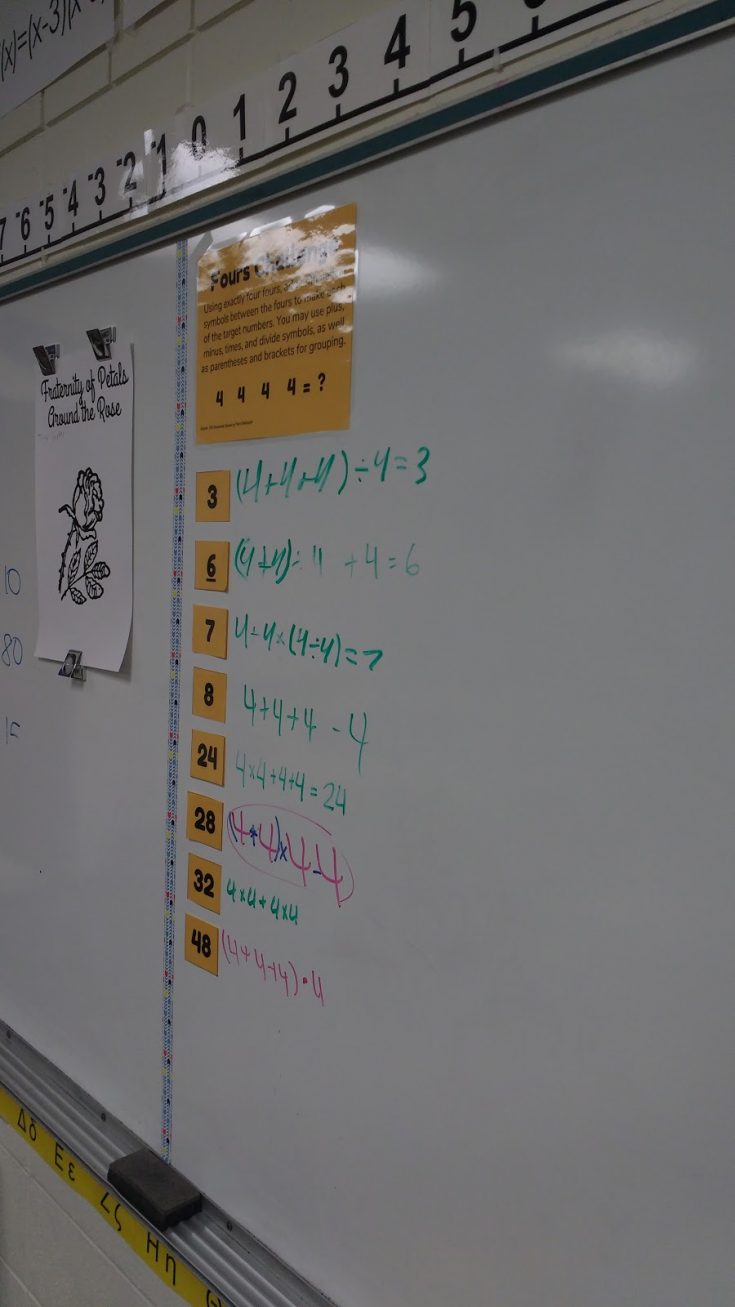 (x)=(x-3)(x
7 -6 -5 -4 -3 -2 -1 0 1 2 3 4 5
Fours Challenge
Using exactly four fours,
symbols between the fours to make each
of the target numbers. You may use plus,
minus, times, and divide symbols, as well
as parentheses and brackets for grouping.
4 4 4 4 = ?
Fraternity of Petals
Around the Rose
3 (4+4+4)÷4=3
6 (4+4)÷4 +4=6
7 (4÷4)=7
8 4+4+4-4
24 4×4+4+4=24
28 (4+4)×4-4
32 4×4+4×4
48 (4+4+4)•4
10
80
Δδ Εε Ζζ Ηη